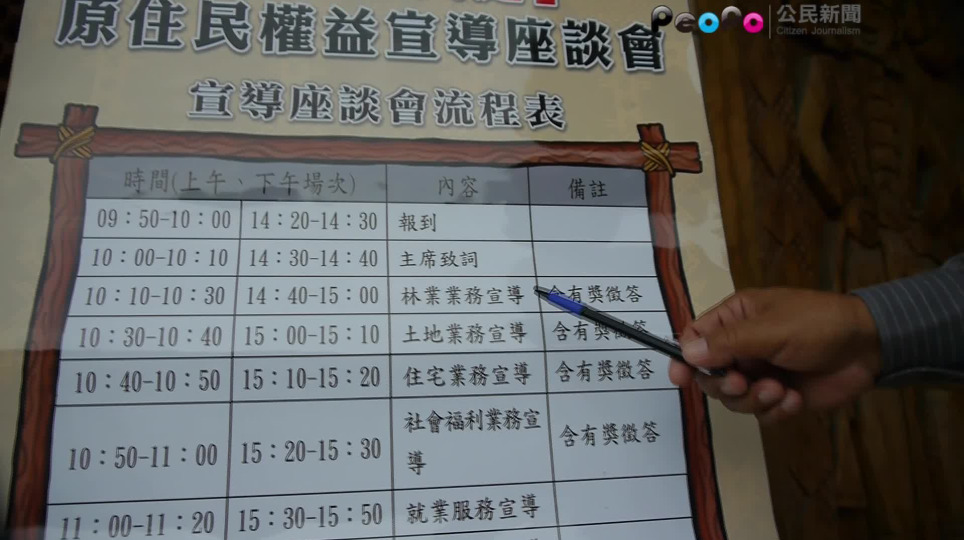 PeoPo 公民新聞
Citizen Journalism
原住民權益宣導座談會
宣導座談會流程表
時間(上午、下午場次) 內容 備註
09:50-10:00 14:20-14:30 報到
10:00-10:10 14:30-14:40 主席致詞
10:10-10:30 14:40-15:00 林業業務宣導 含有獎徵答
10:30-10:40 15:00-15:10 土地業務宣導 含有獎徵答
10:40-10:50 15:10-15:20 住宅業務宣導 含有獎徵答
10:50-11:00 15:20-15:30 社會福利業務宣
導 含有獎徵答
11:00-11:20 15:30-15:50 就業服務宣導